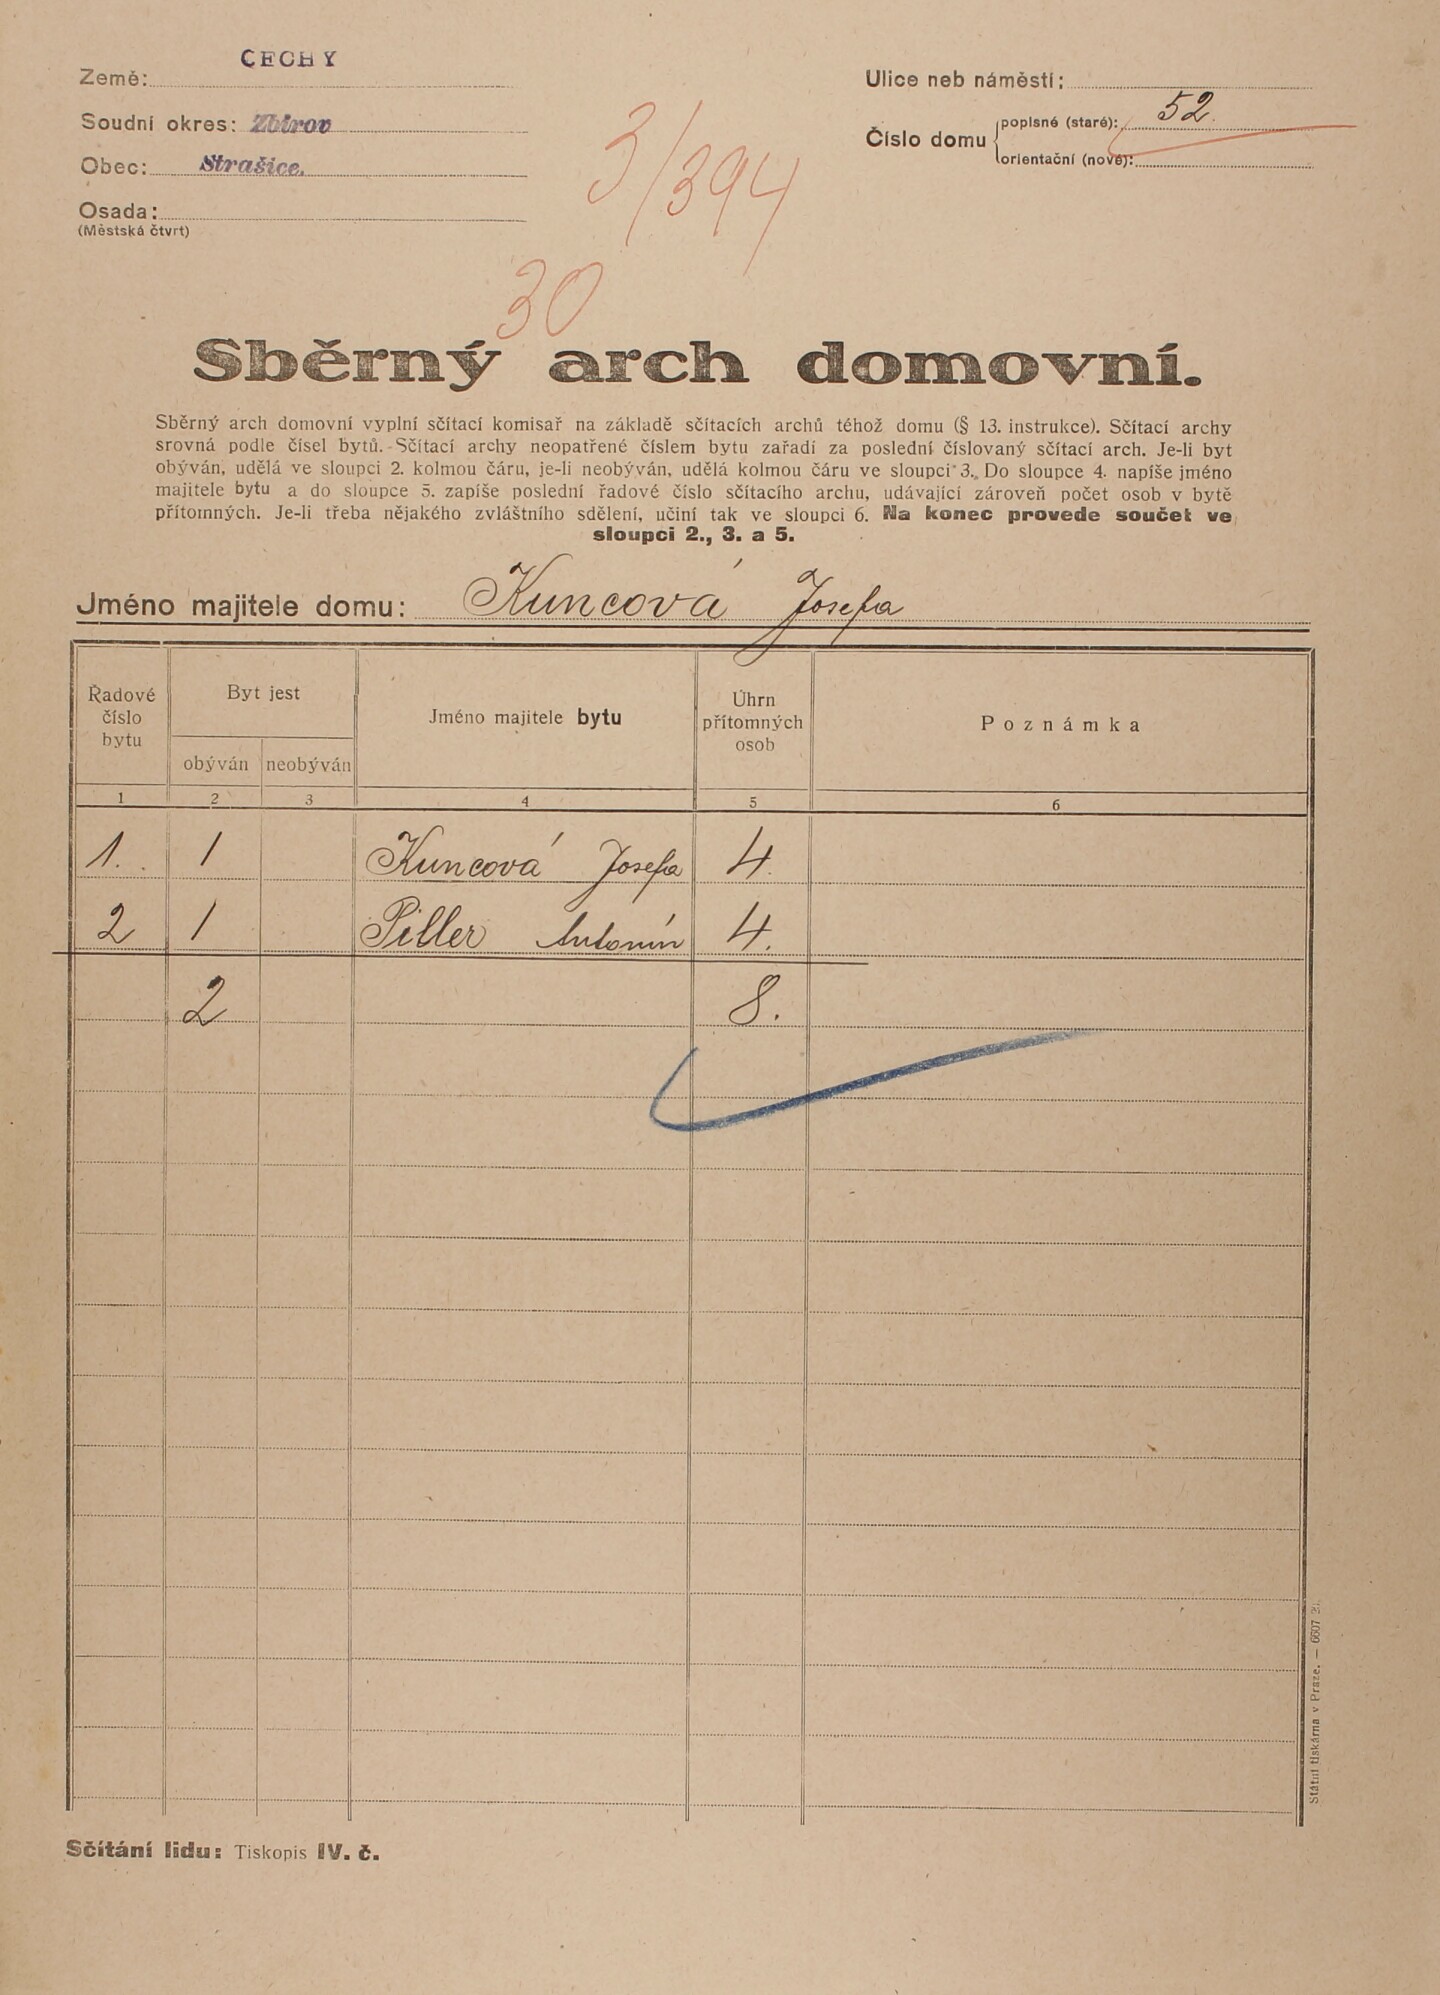 Země: ČECHY
Soudní okres: Zbirov
Obec: Strašice.
Osada:
(Městská čtvrt)
Ulice neb náměstí:
Číslo domu
popisné (staré): 52.
orientační (nové):
3/394
30
Sběrný arch domovní.
Sběrný arch domovní vyplní sčítací komisař na základě sčítacích archů téhož domu (§ 13. instrukce). Sčítací archy
srovná podle čísel bytů. Sčítací archy neopatřené číslem bytu zařadí za poslední číslovaný sčítací arch. Je-li byt
obýván, udělá ve sloupci 2. kolmou čáru, je-li neobýván, udělá kolmou čáru ve sloupci 3. Do sloupce 4. napíše jméno
majitele bytu a do sloupce 5. zapíše poslední řadové číslo sčítacího archu, udávající zároveň počet osob v bytě
přítomných. Je-li třeba nějakého zvláštního sdělení, učiní tak ve sloupci 6. Na konec provede součet ve
sloupci 2., 3. a 5.
Jméno majitele domu: Kuncová Josefa
Řadové číslo bytu
Byt jest
obýván
neobýván
Jméno majitele bytu
Úhrn přítomných osob
Poznámka
1 2 3 4 5 6
1. 1 Kuncová Josefa 4.
2 1 Piller Antonín 4.
2 8.
Sčítání lidu: Tiskopis IV. č.
Státní tiskárna v Praze. — 6607 21.